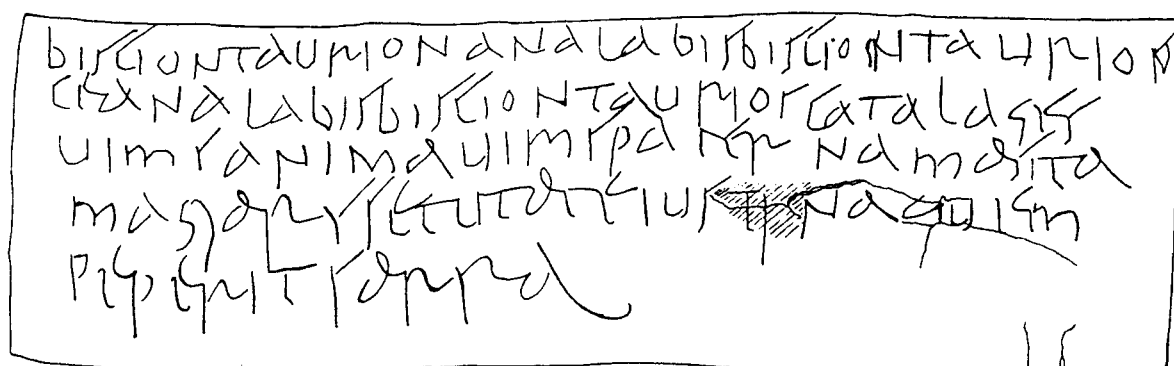 bisgontaurionanalabisbisgontaurion
ceanalabisbisgontaurioscatalages
uimsanimauimspaternamasta
magiarssecutateiustinaquem
peperitsarra